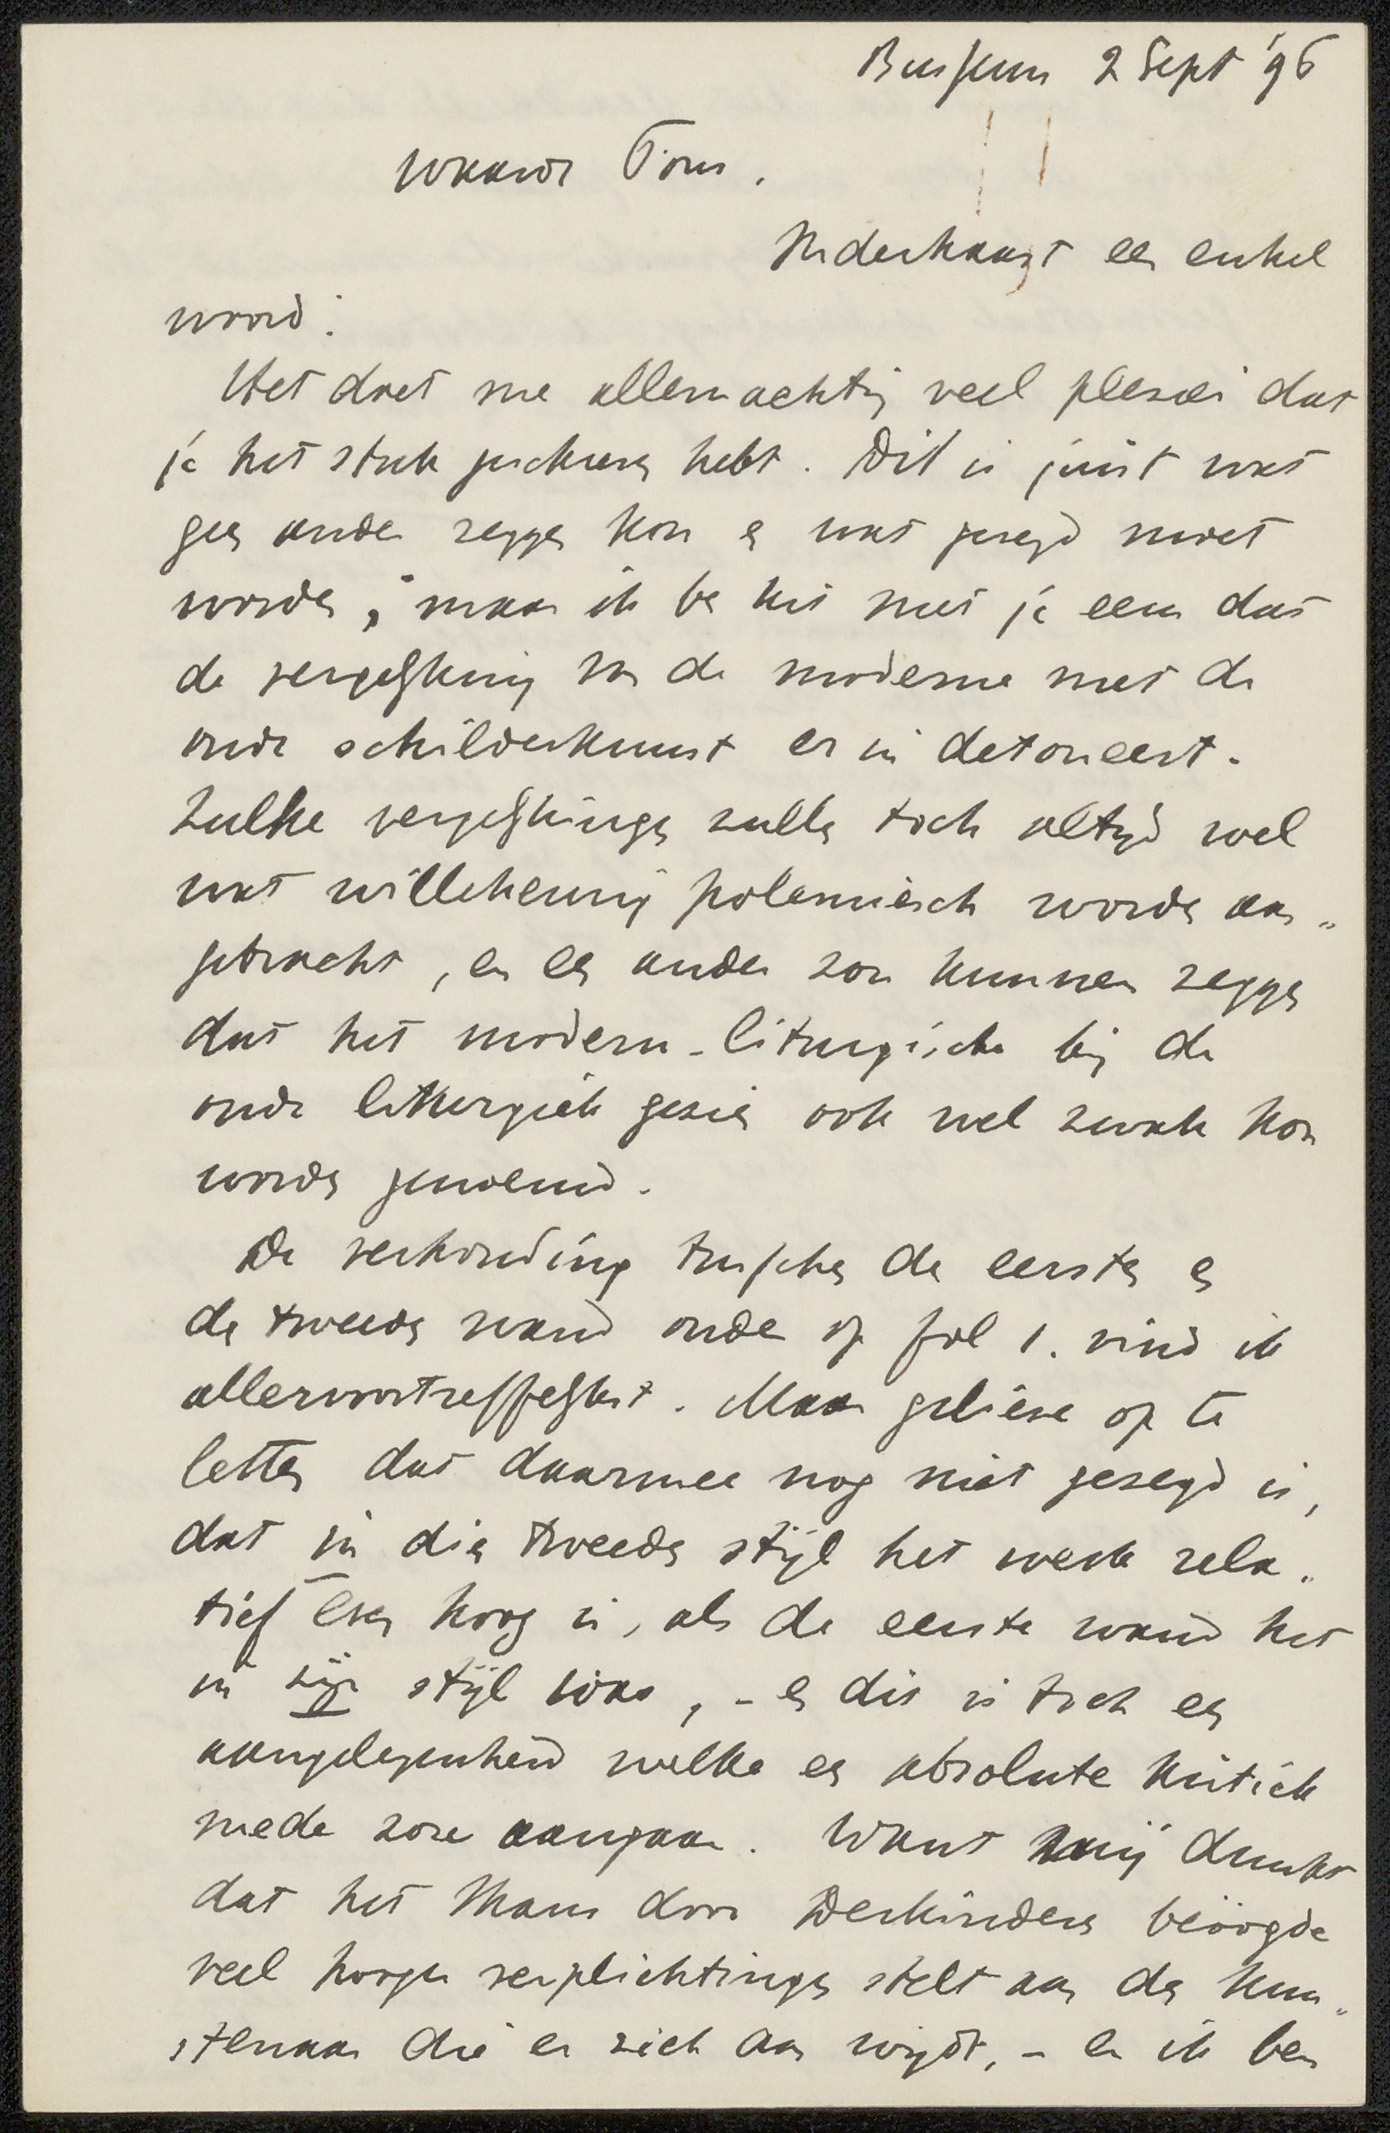 Bussum 2 Sept '96
Waarde Toon.
Inderhaast een enkel
woord:
Het doet me allemachtig veel plezier dat
je het stuk geschreven hebt. Dit is juist wat
geen ander zeggen kon en wat gezegd moet
worden, maar ik ben het met je eens dat
de vergelijking van de moderne met de
oude schilderkunst er in detoneert.
Zulke vergelijkingen zullen toch altijd wel
wat willekeurig polemiesch worden aan„
gebracht, en een ander zou kunnen zeggen
dat het modern-liturgische bij de
oude lithurgiek gezien ook wel zwak kon
worden genoemd.
De verhouding tusschen de eersten en
de tweeden wand onder op fol 1. vind ik
allervoortreffelijkst. Maar gelieve op te
letten dat daarmee nog niet gezegd is,
dat in die tweeden stijl het werk rela„
tief even hoog is, als de eerste wand het
in zijn stijl was, - en dit is toch een
aangelegenheid welke een absolute kritiek
mede zou aangaan. Want mij dunkt
dat het thans door Derkinderen beoogde
veel hooger verplichtingen stelt aan den kun„
stenaar die er zich aan wijdt, - en ik ben